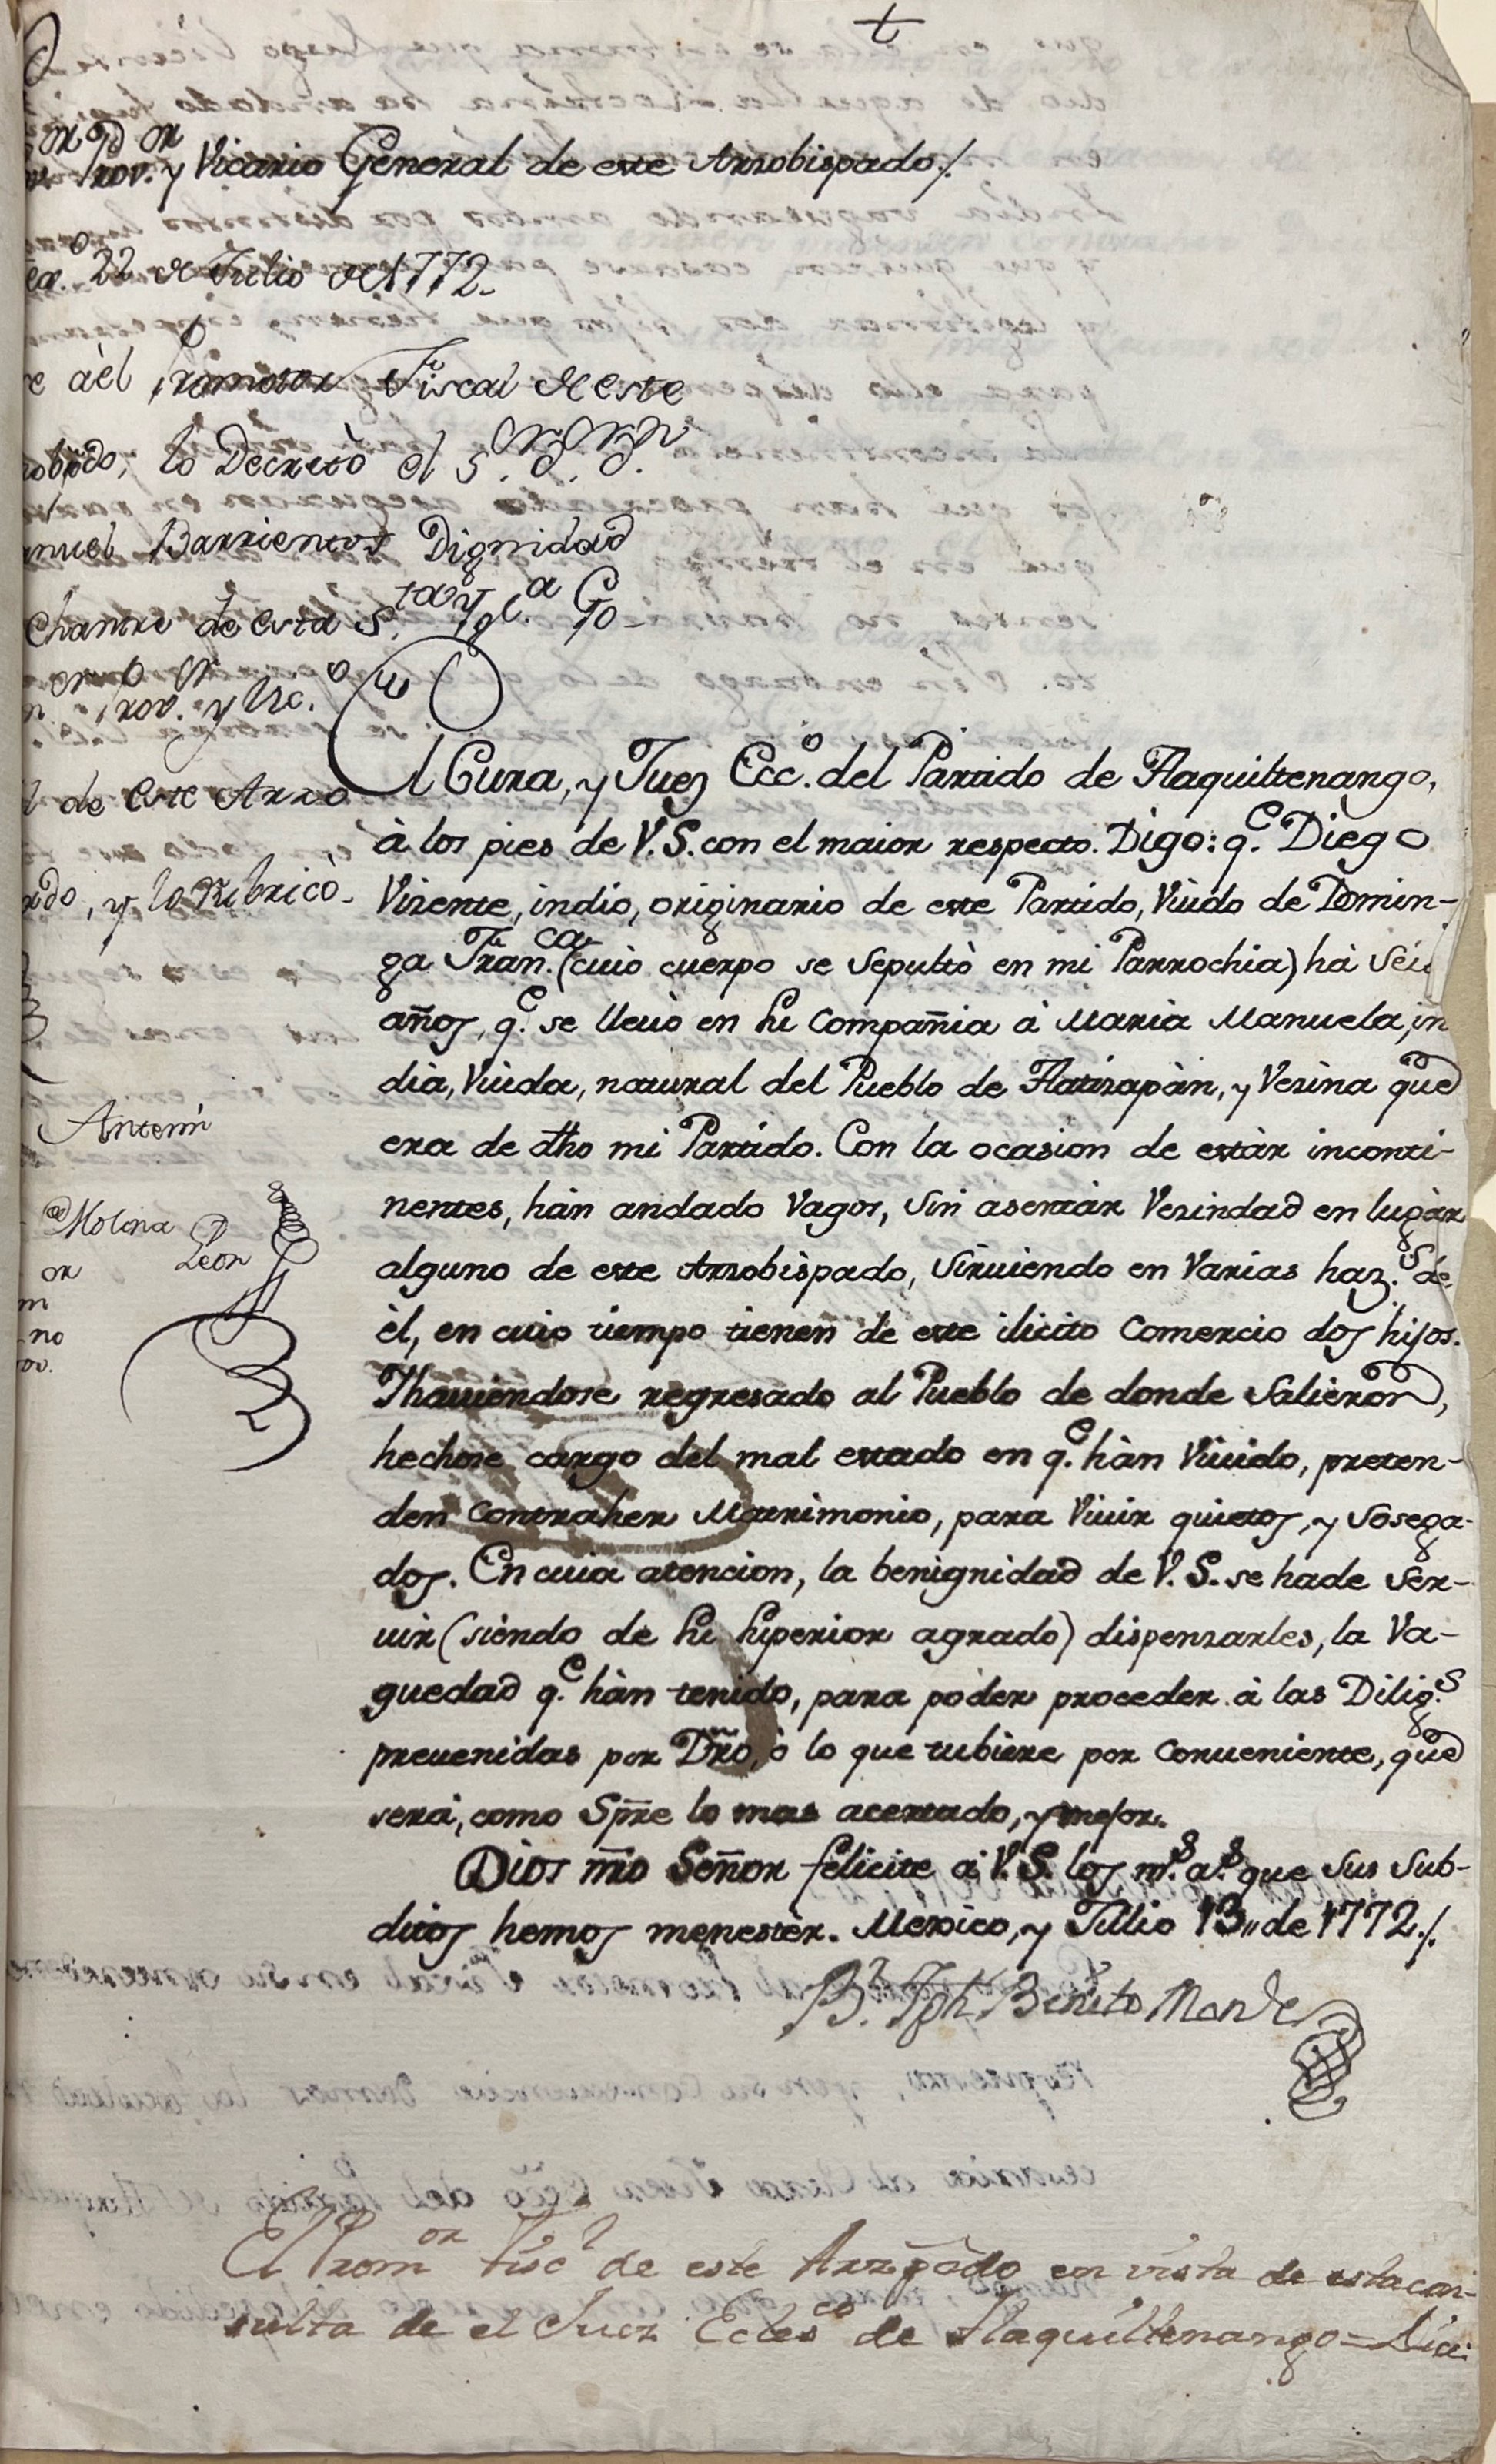 †
or Prov.or y Vicario General de este Arzobispado./.
22 de Julio de 1772.
àel Promotor Fiscal de este
lo Decretò el S.or D.or D.n
Barrientos Dignidad
Chantre de esta S.ta Ygl.a Go-
Prov.or y Vic.o
de este Arzo
y lo Rubricò.
El Cura, y Juez Ecc.o del Partido de Tlaquiltenango,
à los pies de V.S. con el maior respecto. Digo: q.e Diego
Vizente, indio, originario de este Partido, Viudo de Domin-
ga Fran.ca (cuio cuerpo se sepultò en mi Parrochia) hà seis
años, q.e se lleuò en su compañia à Maria Manuela, in
dia, Viuda, natural del Pueblo de Tlatizapàn, y Vezina que
era de dho mi Partido. Con la ocasion de estàr inconti-
nentes, hàn andado Vagos, sin asentàr Vezindad en lugàr
alguno de este Arzobispado, siruiendo en Varias haz.s de
èl, en cuio tiempo tienen de este ilicito Comercio dos hijos.
Yhauiendose regresado al Pueblo de donde salieron,
hechose cargo del mal estado en q.e hàn Viuido, preten-
den contraher Matrimonio, para Viuir quietos, y sosega-
dos. En cuia atencion, la benignidad de V.S. se hade ser-
uir (siendo de su superior agrado) dispenzarles, la Va-
guedad q.e hàn tenido, para poder proceder à las Dilig.s
preuenidas por Dr̃o, ò lo que tubiere por conueniente, que
serà, como Sp̃re lo mas acertado, y mejor.
Dios m̃o Señor felicite à V.S. los m.s a.s que sus sub-
ditos hemos menestèr. Mexico, y Julio 13,, de 1772./.
B.r Jph Benito Mon
Antemi
Molina
Leon
or
no
El Prom.or Fisc.l de este Arzp̃ado en vista de esta con-
sulta de el Juez Ecles.co de Tlaquiltenango = Dice: